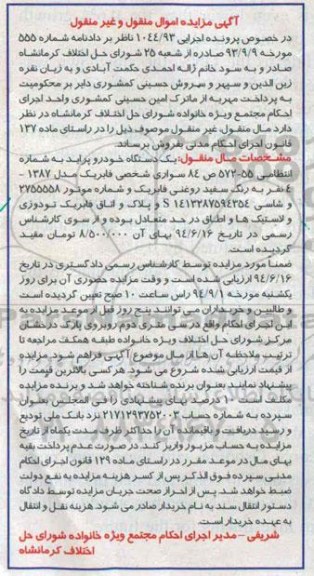 آگهی مزایده اموال منقول و غیر منقول
در خصوص پرونده اجرایی ۱۰۴۴/۹۳ ناظر بر دادنامه شماره ۵۵۵
مورخه ۹۳/۹/۹ صادره از شعبه ۲۵ شورای حل اختلاف کرمانشاه
صادر و به سود خانم ژاله احمدی حکمت آبادی و به زیان نقره
زین الدین و سپهر و سروش حسینی کمشوری دایر بر محکومیت
به پرداخت مهریه از ماترک امین حسینی کمشوری واحد اجرای
احکام مجتمع ویژه خانواده شورای حل اختلاف کرمانشاه در نظر
دارد مال منقول، غیر منقول موصوف ذیل را در راستای ماده ۱۳۷
قانون اجرای احکام مدنی بفروش برساند.
مشخصات مال منقول: یک دستگاه خودرو پراید به شماره
انتظامی ۵۵-۵۷۲ ص ۸۴ سواری شخصی فابریک مدل ۱۳۸۷ -
۴ نفر به رنگ سفید روغنی فابریک و شماره موتور ۲۷۵۵۵۵۸
و شاسی S ۱۴۱۲۲۸۷۵۹۴۳۵۴ و پلاک و اتاق فابریک تودوزی
و لاستیک ها و اطاق در حد متعادل بوده و از سوی کارشناس
رسمی در تاریخ ۹۴/۶/۱۶ بهای آن ۸/۵۰۰/۰۰۰ تومان مفید
گردیده است.
ضمناً مورد مزایده توسط کارشناس رسمی دادگستری در تاریخ
۹۴/۶/۱۶ ارزیابی شده است و وقت مزایده حضوری آن برای روز
یکشنبه مورخه ۹۴/۹/۱ راس ساعت ۱۰ صبح تعیین گردیده است
و طالبین و خریداران می توانند پنج روز قبل از موعد مزایده به
این اجرای احکام واقع در سی متری دوم روبروی پارک درخشان
مرکز شورای حل اختلاف ویژه خانواده طبقه همکف مراجعه تا
ترتیب ملاحظه آن ها از مال موضوع آگهی فراهم شود. مزایده
از قیمت ارزیابی شده شروع می شود. هر کسی بالاترین قیمت را
پیشنهاد نمایند بعنوان برنده شناخته خواهد شد و برنده مزایده
مکلف است ۱۰ درصد بهای پیشنهادی را فی المجلس بعنوان
سپرده به شماره حساب ۲۱۷۱۲۹۳۷۵۲۰۰۳ نزد بانک ملی تودیع
و رسید دریافت و باقیمانده آن را حداکثر ظرف مدت یکماه از تاریخ
مزایده به حساب مزبور واریز کند. در صورت عدم پرداخت بقیه
بهای مال در موعد مقرر در راستای ماده ۱۲۹ قانون اجرای احکام
مدنی سپرده فوق الذکر پس از کسر هزینه مزایده به نفع دولت
ضبط خواهد شد. پس از احراز صحت جریان مزایده توسط دادگاه
دستور انتقال سند به نام خریدار صادر می شود. هزینه نقل و انتقال
به عهده خریدار است.
شریفی – مدیر اجرای احکام مجتمع ویژه خانواده شورای حل
اختلاف کرمانشاه